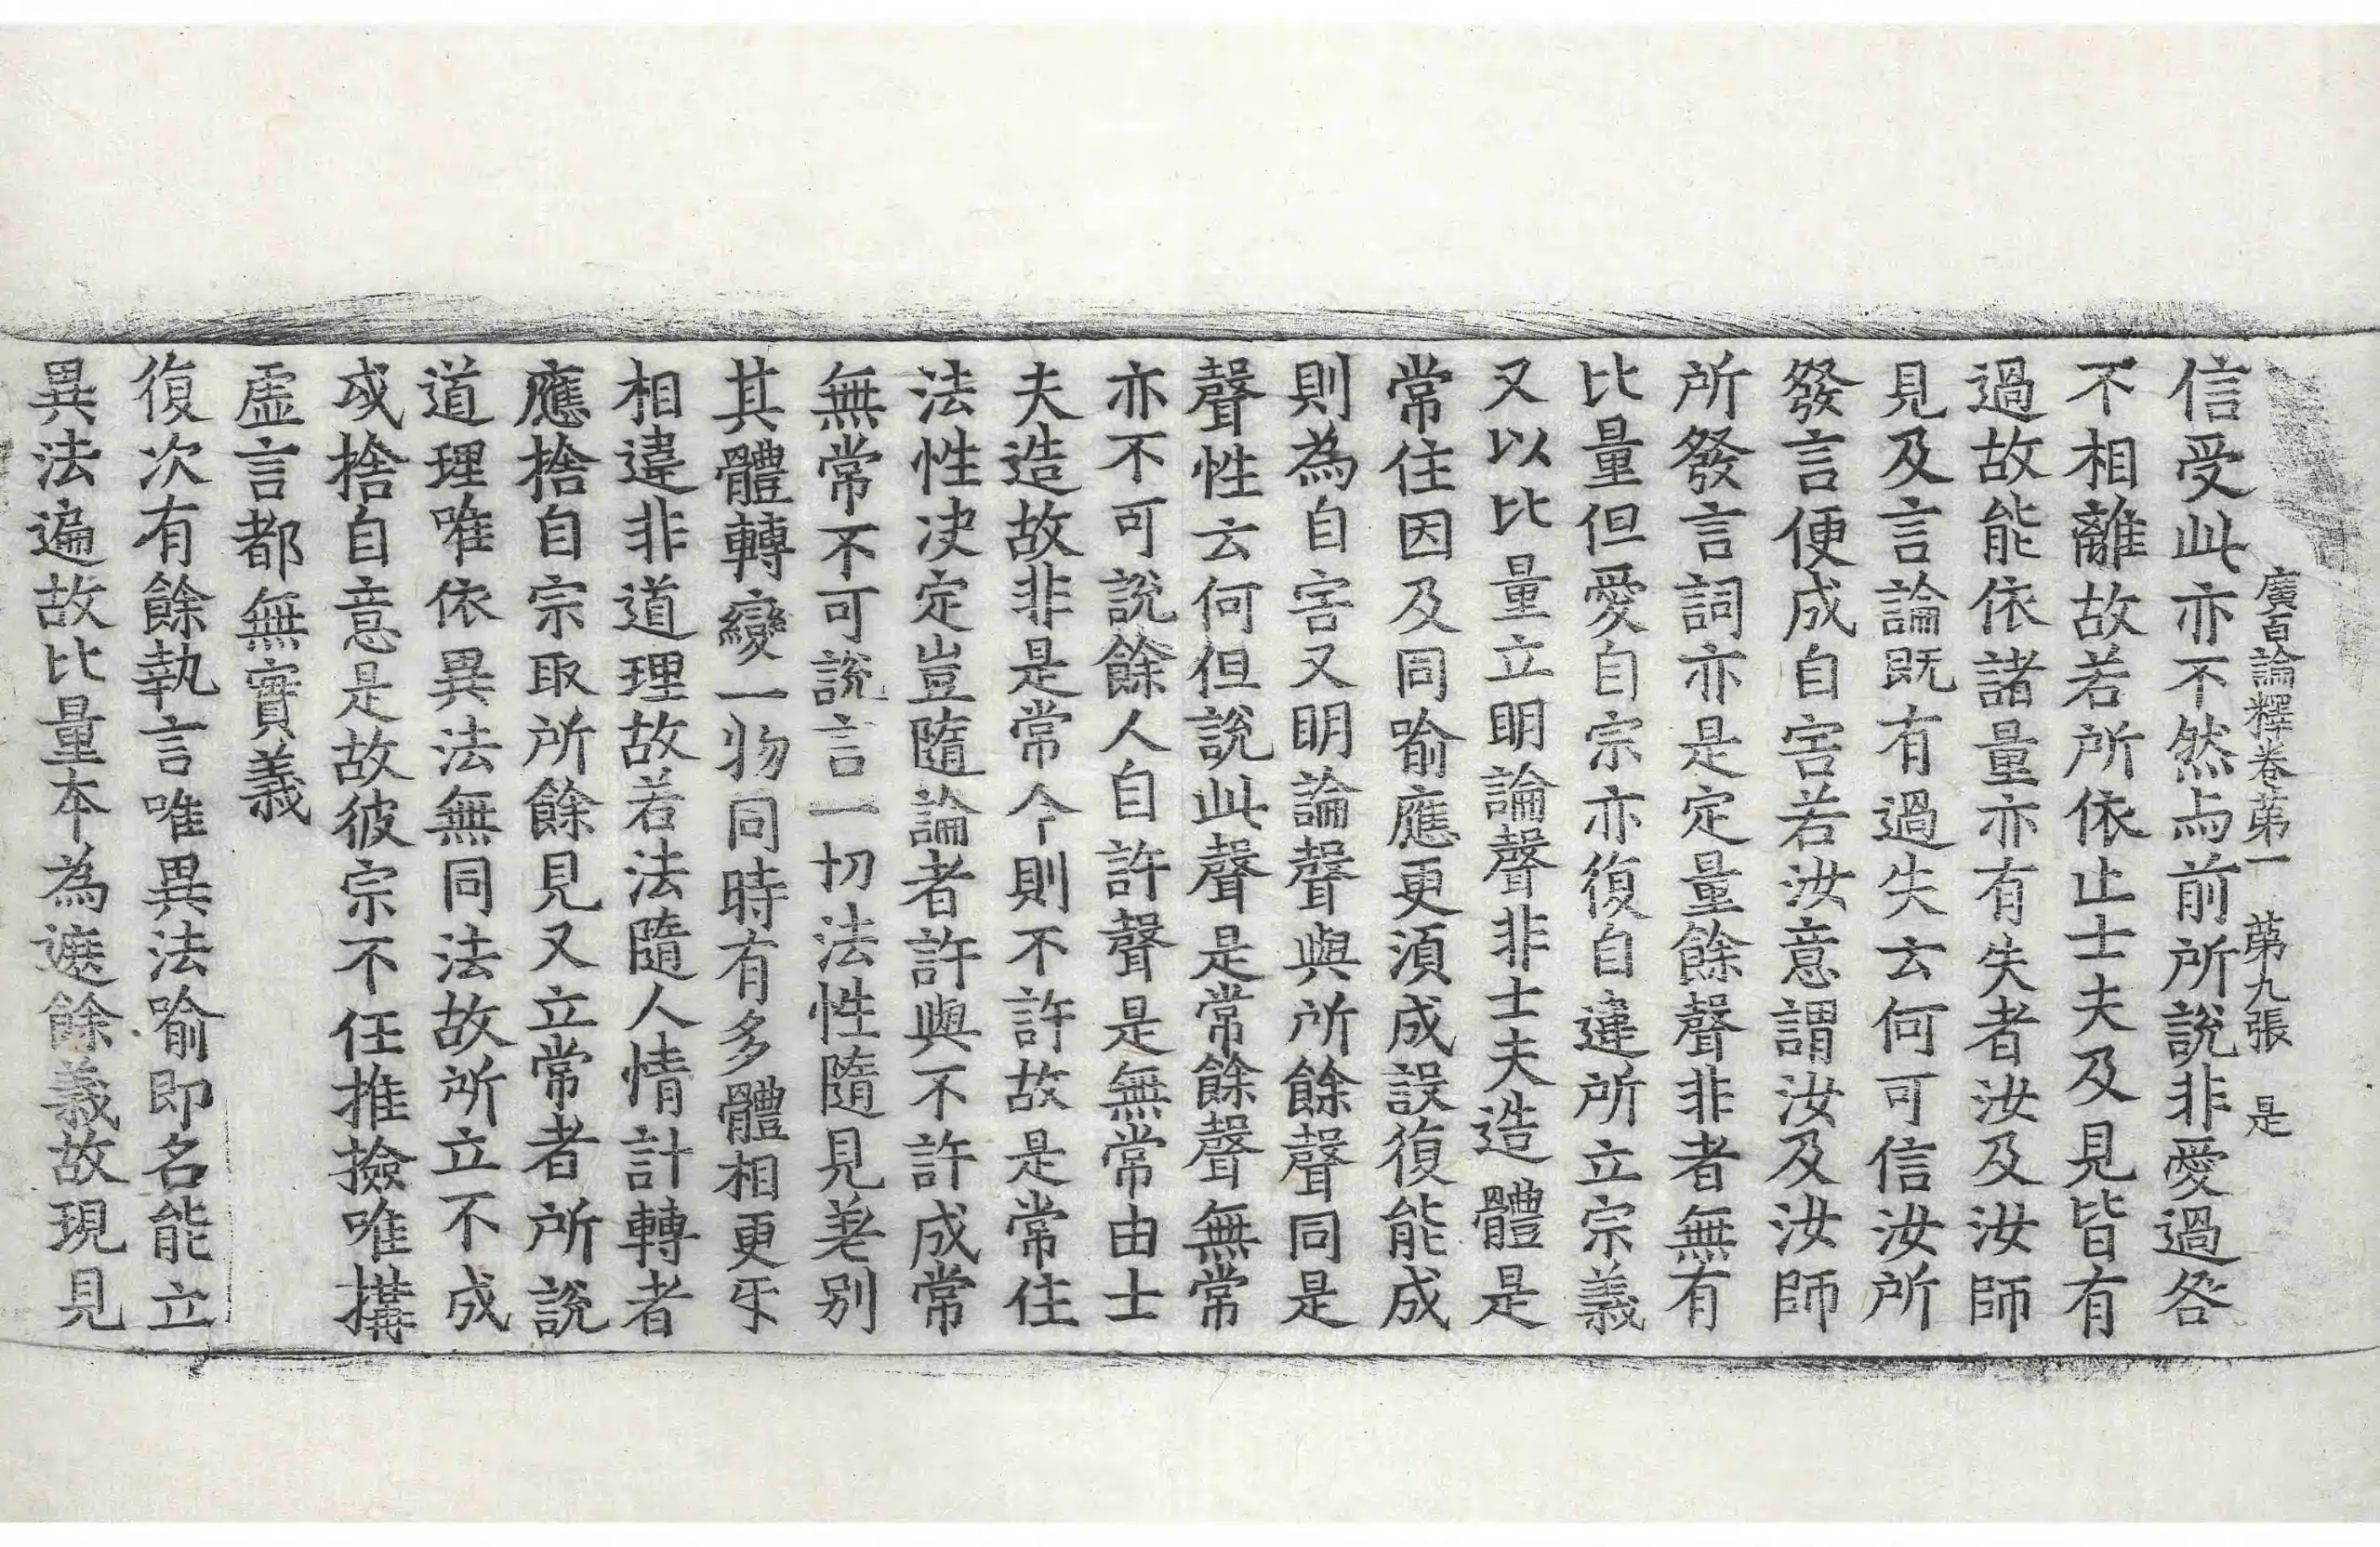 廣百論釋卷苐一 苐九張 是
信受此亦不然与前所說非愛過咎
不相離故若所依止士夫及見皆有
過故能依諸量亦有失者汝及汝師
見及言論既有過失云何可信汝所
發言便成自害若汝意謂汝及汝師
所發言詞亦是定量餘聲非者無有
比量但愛自宗亦復自違所立宗義
又以比量立明論聲非士夫造體是
常住因及同喻應更湏成設復能成
則為自害又明論聲與所餘聲同是
聲性云何但說此聲是常餘聲無常
亦不可說餘人自許聲是無常由士
夫造故非是常今則不許故是常住
法性决定豈隨論者許與不許成常
無常不可說言一切法性隨見差别
其體轉變一物同時有多體相更牙
相違非道理故若法隨人情計轉者
應捨自宗取所餘見又立常者所說
道理唯依異法無同法故所立不成
或捨自意是故彼宗不任推撿唯搆
虛言都無實義
復次有餘執言唯異法喻即名能立
異法遍故比量本為遮餘義故現見